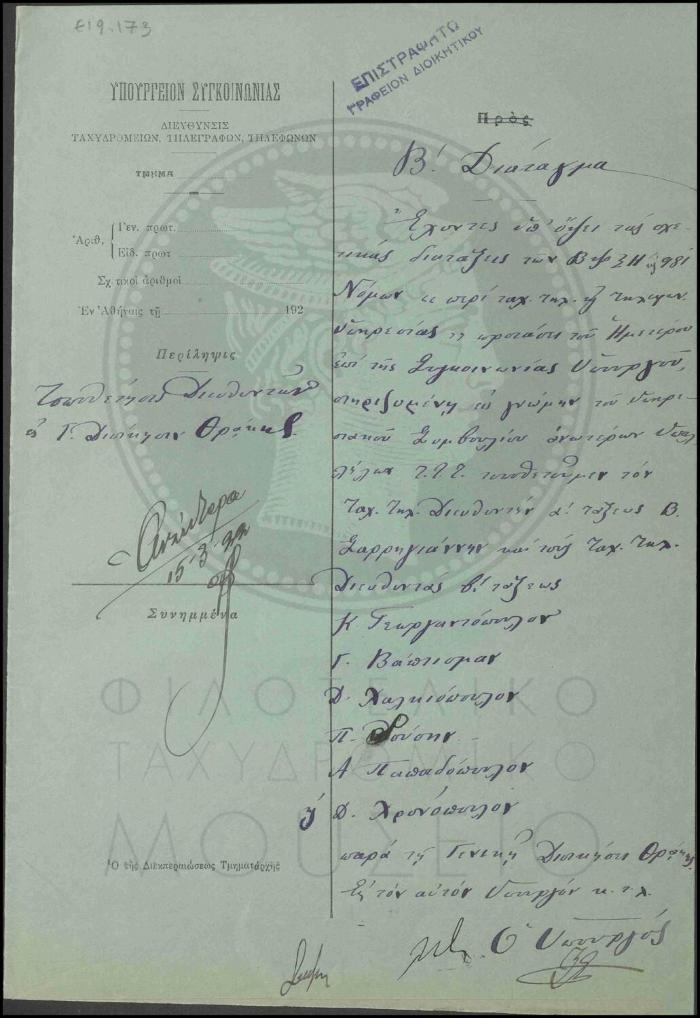 Ε19.173
ΕΠΙΣΤΡΑΦΗΤΩ
ΓΡΑΦΕΙΟΝ ΔΙΟΙΚΗΤΙΚΟΥ
ΥΠΟΥΡΓΕΙΟΝ ΣΥΓΚΟΙΝΩΝΙΑΣ
ΔΙΕΥΘΥΝΣΙΣ
ΤΑΧΥΔΡΟΜΕΙΩΝ, ΤΗΛΕΓΡΑΦΩΝ, ΤΗΛΕΦΩΝΩΝ
ΤΜΗΜΑ
Ἀριθ.
Γεν. πρωτ.
Εἰδ. πρωτ
Σχετικοὶ ἀριθμοὶ
Ἐν Ἀθήναις τῇ 192
Περίληψις
Τοποθέτησις Διευθυντῶν
Γ. Διοίκησιν Θράκης
15-3-22
Συνημμένα
Ὁ τῆς Διεκπεραιώσεως Τμηματάρχης
Πρὸς
Β. Διάταγμα
Ἔχοντες ὑπ' ὄψει τὰς σχε-
τικὰς διατάξεις των ΒϠΞΗ 981
Νόμων περὶ ταχ. τηλ. τηλεφων.
ὑπηρεσίας προτάσει τοῦ Ἡμετέρου
ἐπὶ τῆς Συγκοινωνίας Ὑπουργοῦ,
στηριζομένῃ γνώμην τοῦ ὑπηρε-
σιακοῦ Συμβουλίου ἀνωτέρων Ὑπαλ
λήλων Τ.Τ.Τ. τοποθετοῦμεν τὸν
Ταχ. Τηλ. Διευθυντὴν α' τάξεως Β.
Σαρρηγιάννην καὶ τοὺς Ταχ. Τηλ.
Διευθυντὰς β' τάξεως
Κ. Γεωργαντόπουλον
Γ. Βάπτισμαν
Δ. Χαλκιόπουλον
Π. Ρούσην
Α. Παπαδόπουλον
Δ. Χρονόπουλον
παρὰ τῇ Γενικῇ Διοικήσει Θράκης
Εἰς τὸν αὐτὸν Ὑπουργὸν κ.τ.λ.
Ὁ Ὑπουργός
ΦΙΛΟΤΕΛΙΚΟ
ΤΑΧΥΔΡΟΜΙΚΟ
ΜΟΥΣΕΙΟ